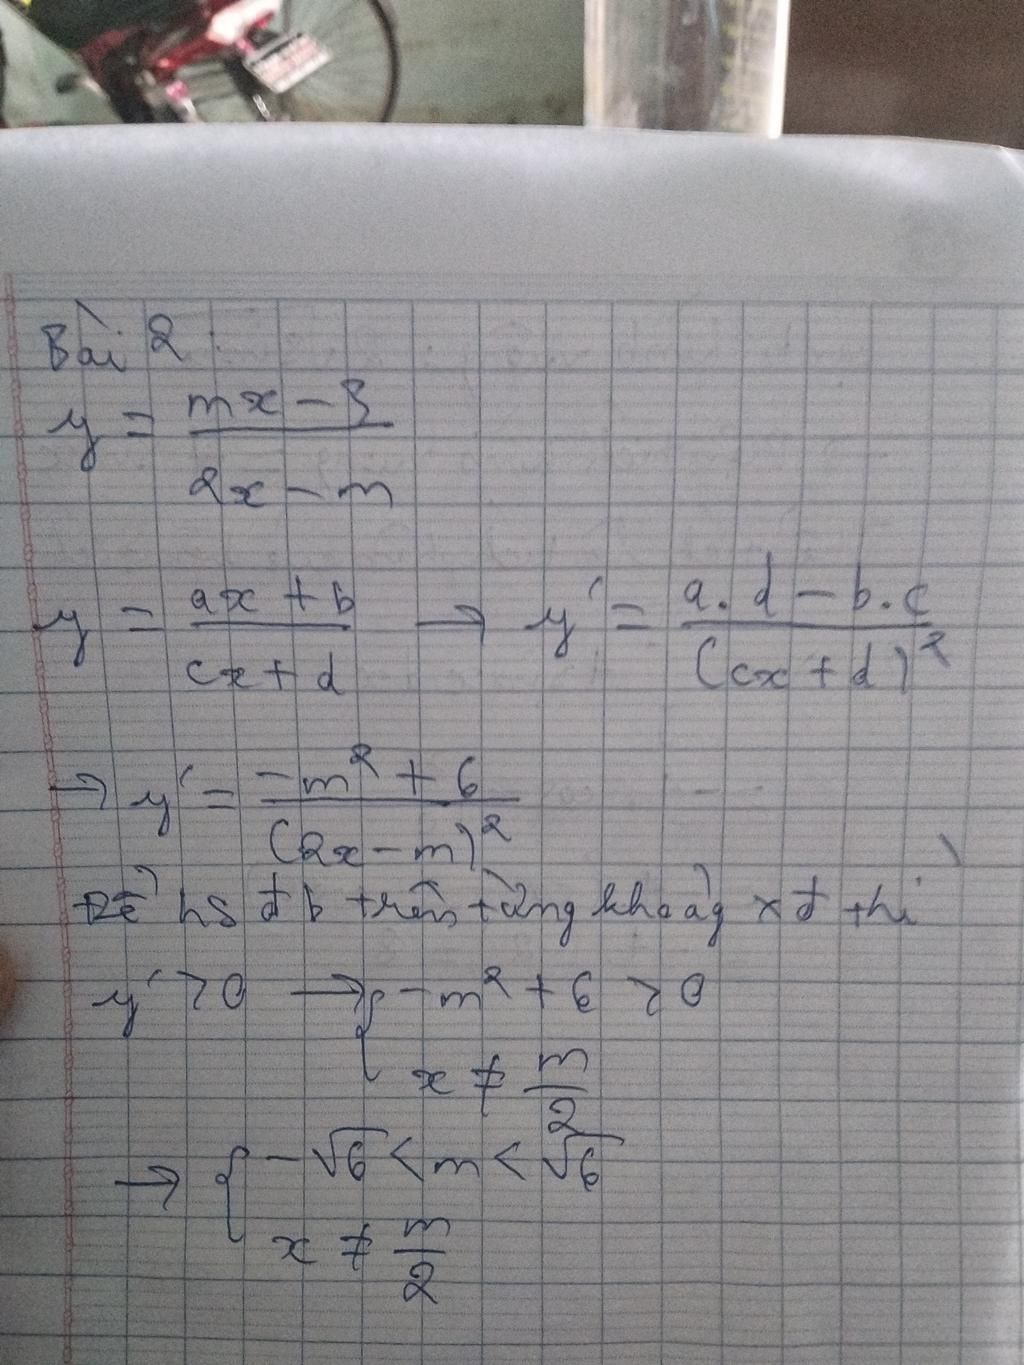 Bài 2:
y = (mx - 3)/(2x - m)
y = (ax + b)/(cx + d) → y' = (a.d - b.c)/(cx + d)²
→ y' = (-m² + 6)/(2x - m)²
Để hs đb trên từng khoảg xđ thì
y' > 0 → { -m² + 6 > 0
x ≠ m/2
→ { -√6 < m < √6
x ≠ m/2